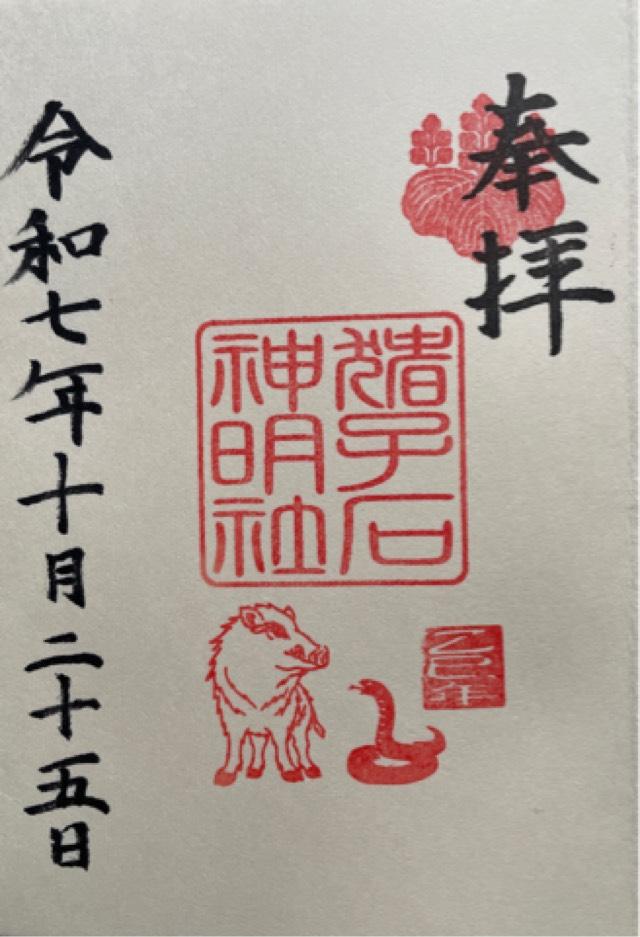 奉拝
猪子石
神明社
乙巳年
令和七年十月二十五日